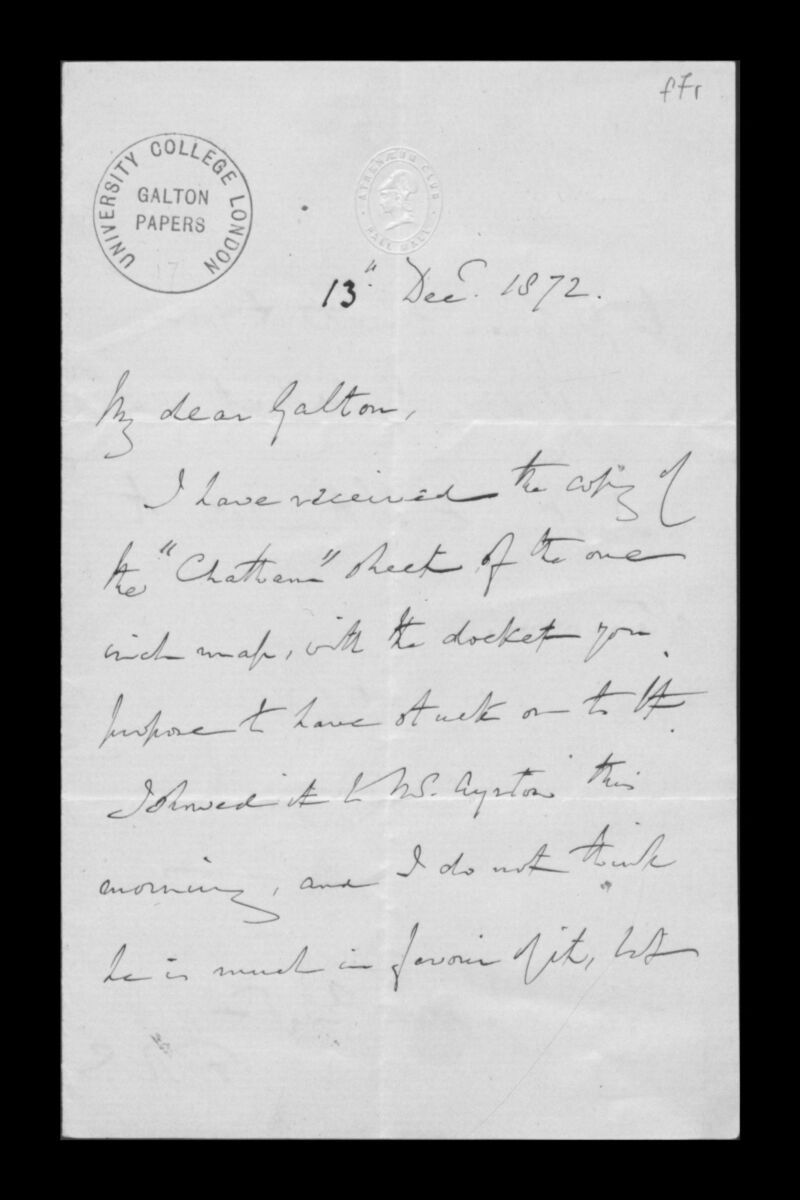 f7r
UNIVERSITY COLLEGE LONDON
GALTON
PAPERS
17
ATHENÆUM CLUB
PALL MALL
13" Decr. 1872.
My dear Galton,
I have received the copy of
the "Chatham" sheet of the one
inch map, with the docket you
purpose to have stuck on to it.
I showed it to Mr. Ayrton this
morning, and I do not think
he is much in favour of it, but